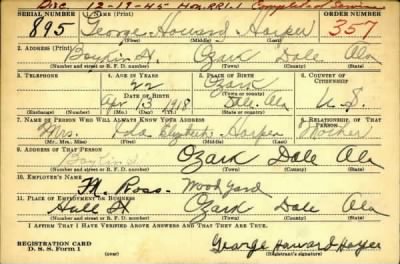 Dis 12-17-45 Hon. RR1-1 Completion of Service
SERIAL NUMBER 1. NAME (Print) ORDER NUMBER
895 George Howard Harper 357
(First) (Middle) (Last)
2. ADDRESS (Print)
Boykin St. Ozark Dale Ala
(Number and street or R. F. D. number) (Town) (County) (State)
3. TELEPHONE 4. AGE IN YEARS 5. PLACE OF BIRTH 6. COUNTRY OF CITIZENSHIP
22 Ozark
DATE OF BIRTH (Town or county)
Apr 13 1918 Dale. Ala U.S.
(Exchange) (Number) (Mo.) (Day) (Yr.) (State or country)
7. NAME OF PERSON WHO WILL ALWAYS KNOW YOUR ADDRESS 8. RELATIONSHIP OF THAT PERSON
Mrs. Ida Elizabeth Harper Mother
(Mr., Mrs., Miss) (First) (Middle) (Last)
9. ADDRESS OF THAT PERSON
Boykin St Ozark Dale Ala
(Number and street or R. F. D. number) (Town) (County) (State)
10. EMPLOYER'S NAME
M. Ross. Wood Yard
11. PLACE OF EMPLOYMENT OR BUSINESS
Hull St Ozark Dale Ala
(Number and street or R. F. D. number) (Town) (County) (State)
I AFFIRM THAT I HAVE VERIFIED ABOVE ANSWERS AND THAT THEY ARE TRUE.
REGISTRATION CARD
D. S. S. Form 1 George Howard Harper
(Registrant's signature)